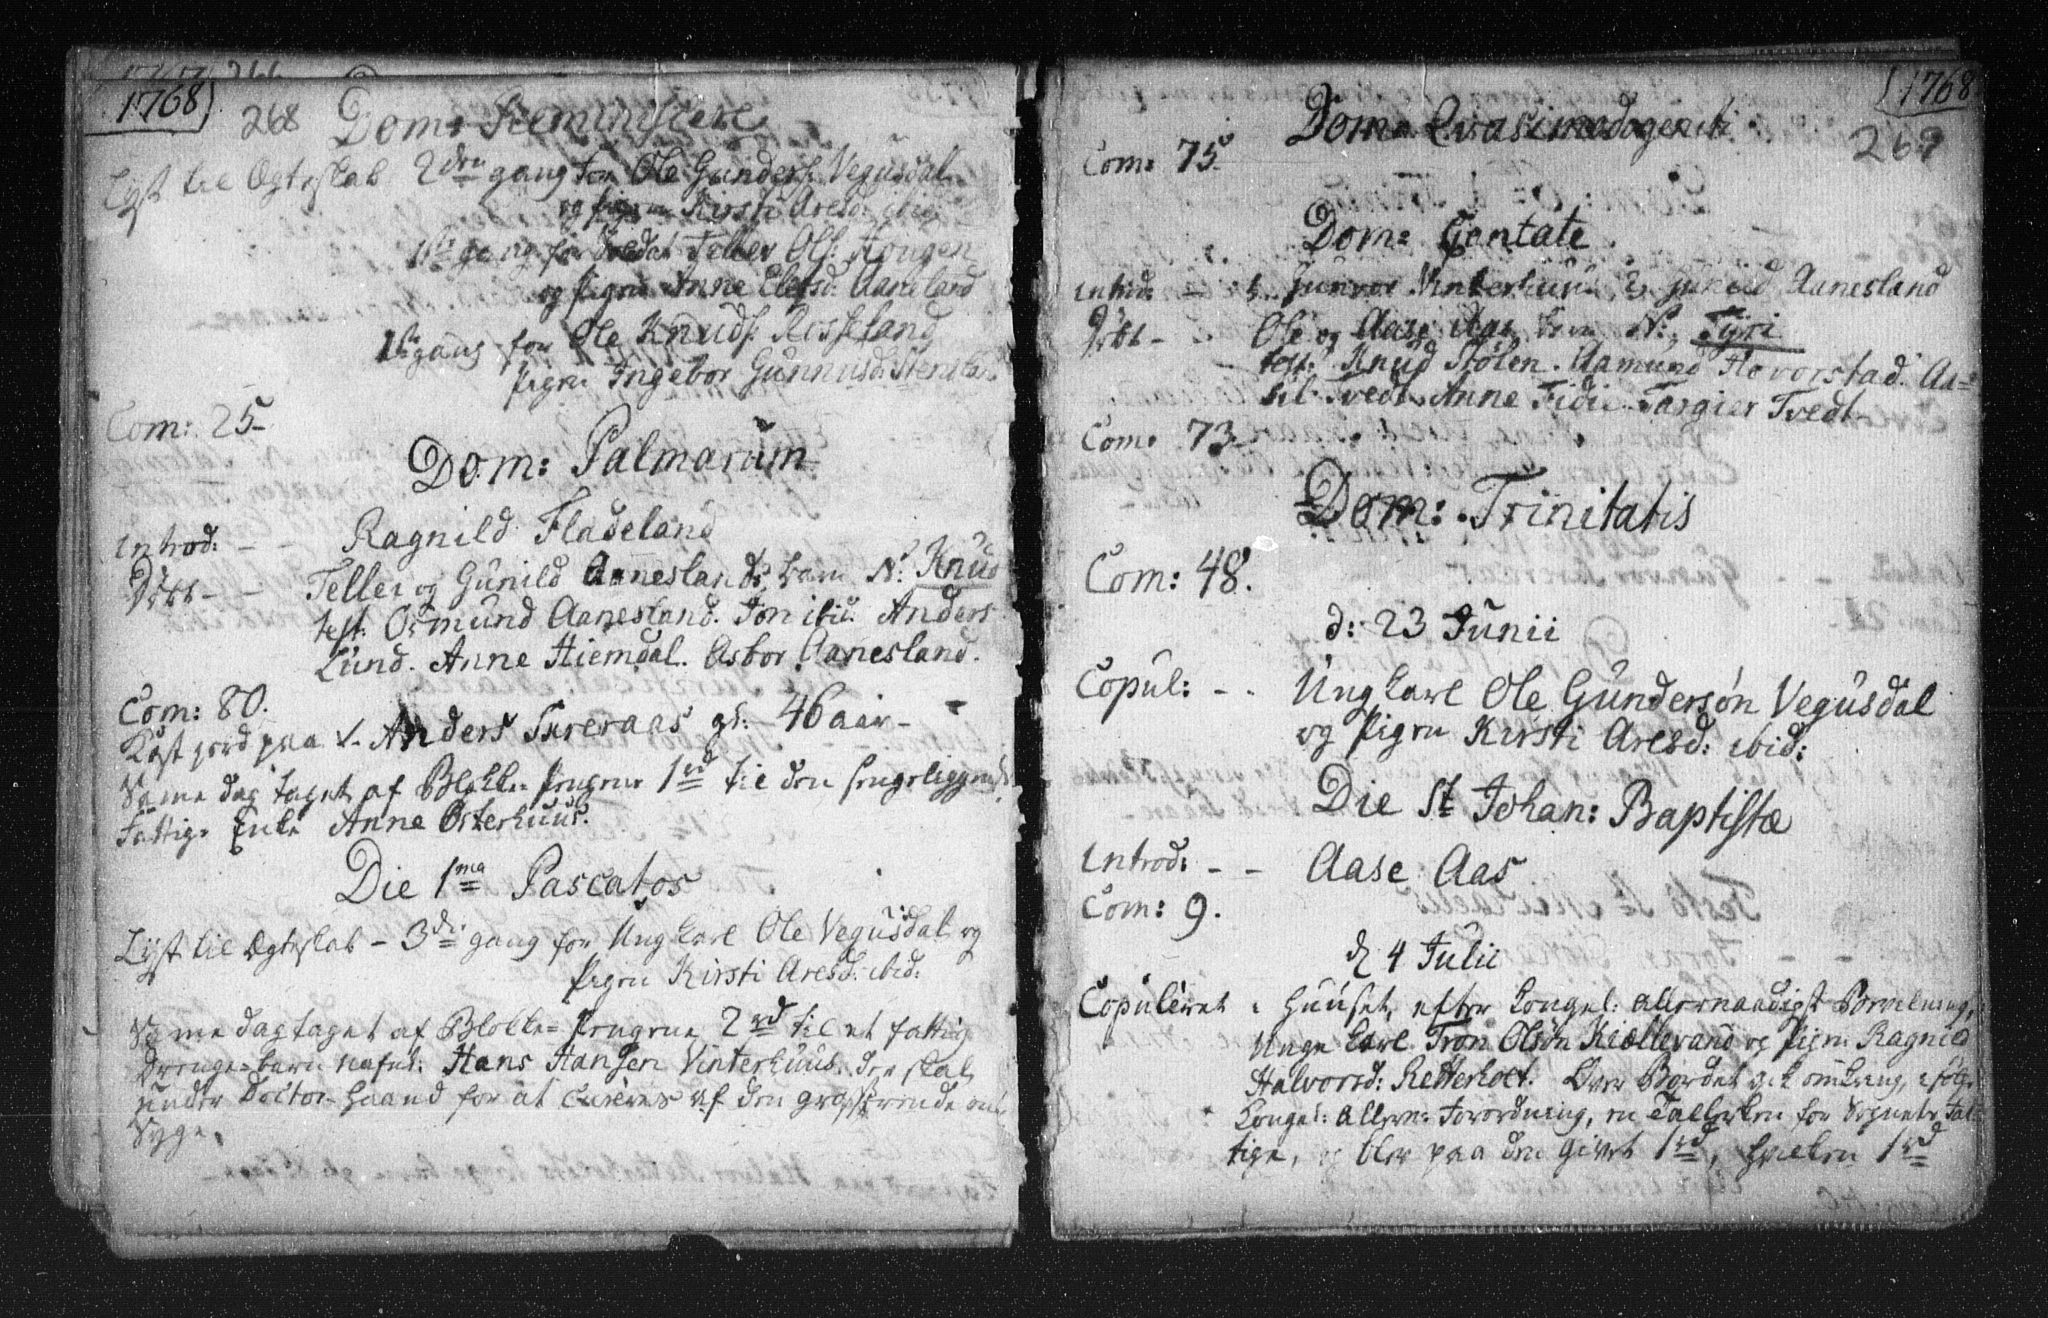 1768
268
Dom: Reminiscere
Lyst til Ægteskab 2den gang for Ole Gunders: Vegusdal
og pigen Kirsti Aresd: ibid
1ste gang for Soldat Tellev Ols: Hougen
og pigen Anne Elefsd: Aanesland
1ste gang for Ole Knuds: Risseland
pigen Ingebor Gunnusd:
Com: 25-
Dom: Palmarum
Introd: - - Ragnild Fladeland
Döbt - - Tellev og Gunild Aanesland, barn N: Knud
test: Osmund Aanesland. Jon ibid. Anders
Lund. Anne Hiemdal. Asbor Aanesland.
Com: 80.
Kast jord paa 1. Anders gl: 46 aar -
Same dag taget af Blokke-Pengene 1 rd til den sengeliggende
Fattige Enke Anne Østerhuus.
Die 1ma Pascatos
Lyst til Ægteskab - 3die gang for Ung Karl Ole Vegusdal og
Pigen Kirsti Aresd: ibid:
Same dag taget af Blokke-Pengene 2 rd til et fattig
Drenge-barn nafnl: Hans Hansen Vinterhuus, der skal
under Doctor-Haand for at cureres af den grasserende
Syge.
1768
269
Dom: Qvasimodogeniti
Com: 75
Dom: Cantate
Introd: - Gunvor Vinterhuus, Gunild Aanesland
Döbt - - Ole og Aase Aas barn N: Tyri
test: Knud Stölen. Aamund Hovorstad. Aa=
sil Tvedt. Anne Fidie. Targier Tvedt
Com: 73-
Dom: Trinitatis
Com: 48.
d: 23 Junii
Copul: - - Ung Karl Ole Gundersøn Vegusdal
og Pigen Kirsti Aresd: ibid:
Die St Johan: Baptistæ
Introd: - - Aase Aas
Com: 9.
d 4 Julii
Copuleret i Huuset, efter Kongel: allernaadigst Bevilning,
Unge Karl Tron Olsøn Kiællevand og Pigen Ragnild
Halvorsd: Retterholt. Over Bordet gik omkring, efølge
Kongel: allern: Forordning, en Tallerken for Sognets Fat=
tige, og blev paa den givet 1 rd, hvilken 1 rd